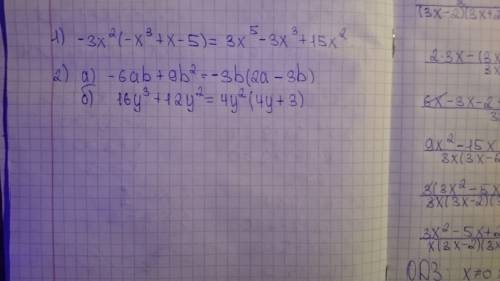 1) -3x²(-x³+x-5)= 3x⁵-3x³+15x²
2) а) -6ab+9b²=-3b(2a-3b)
б) 16y³+12y²=4y²(4y+3)
(3x-2)(3x+
2·3x-(3x
3x
6x-3x-2
3
9x²-15x
3x(3x-6
3(3x²-5x
3x(3x-2)(3x
3x²-5x+2
x(3x-2)(3x
ОДЗ: x≠0